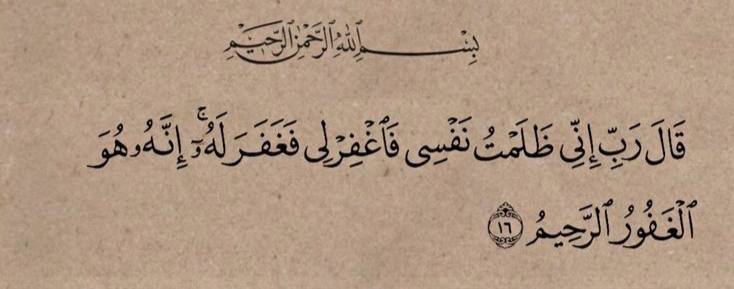 بِسْمِ ٱللَّهِ ٱلرَّحْمَٰنِ ٱلرَّحِيمِ
قَالَ رَبِّ إِنِّى ظَلَمْتُ نَفْسِى فَٱغْفِرْ لِى فَغَفَرَ لَهُۥٓ ۚ إِنَّهُۥ هُوَ
ٱلْغَفُورُ ٱلرَّحِيمُ ١٦